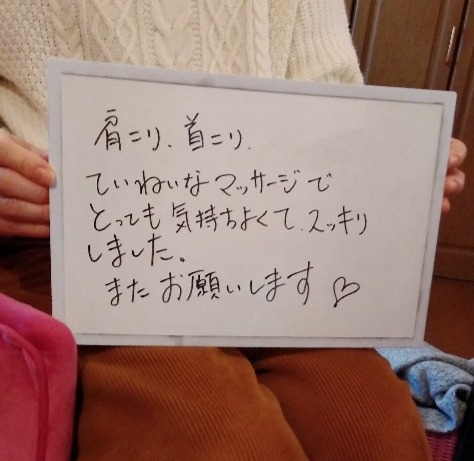 肩こり、首こり、
ていねいなマッサージで
とっても気持ちよくて、スッキリ
しました。
またお願いします♡